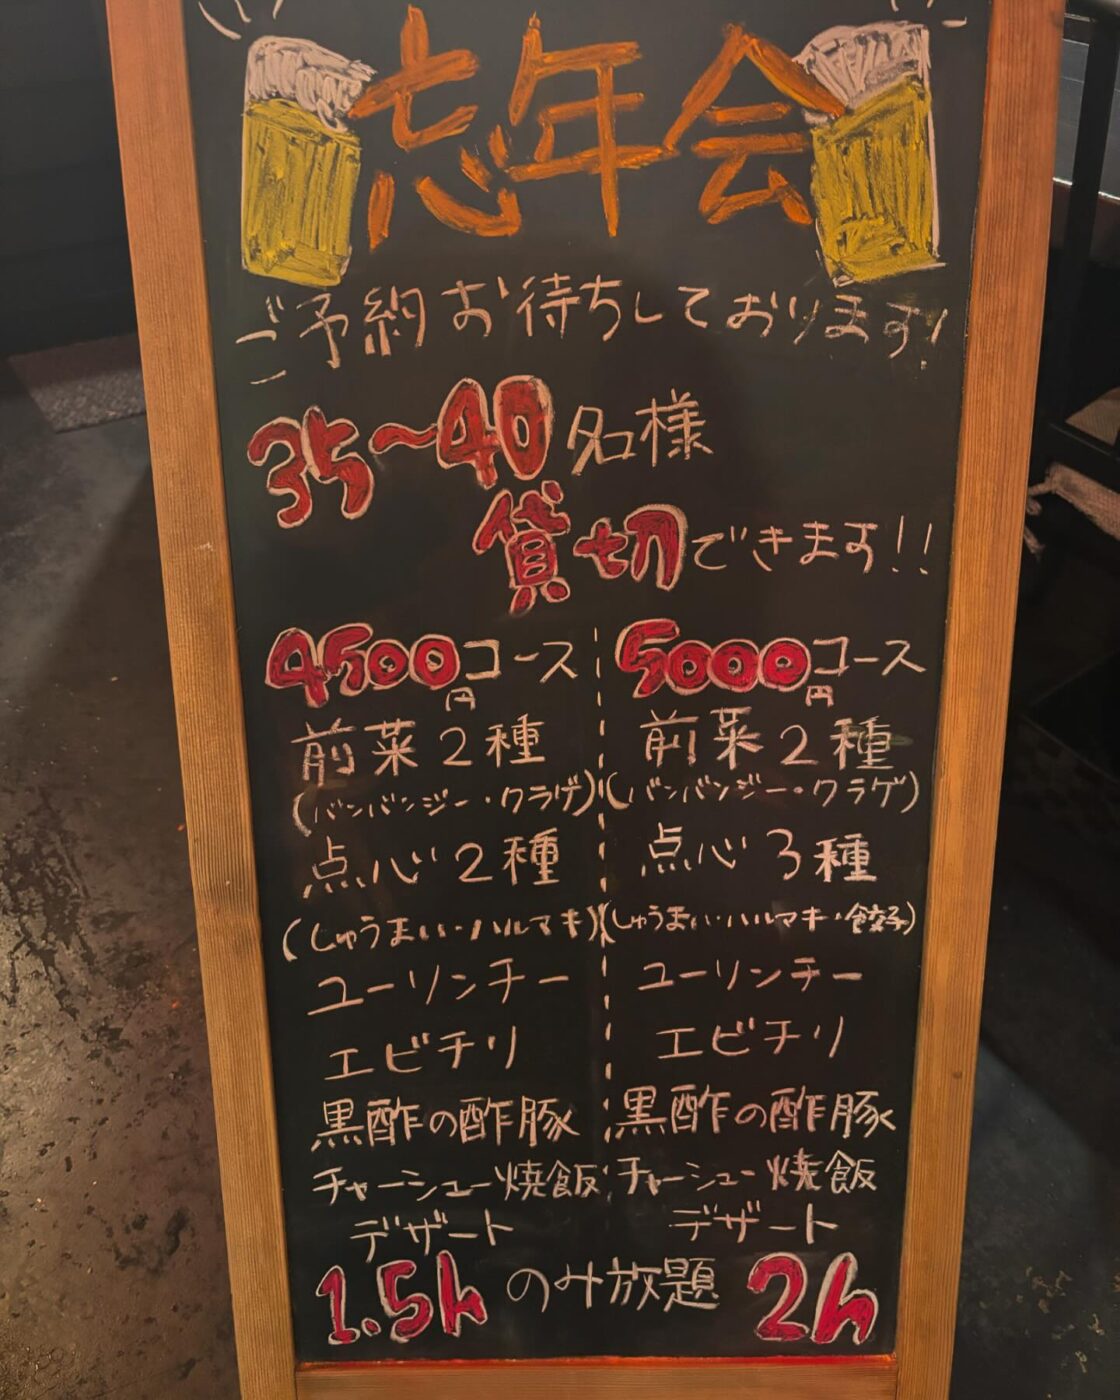 忘年会
ご予約お待ちしております!
35〜40名様
貸切できます!!
4500円コース
前菜2種
(バンバンジー・クラゲ)
点心2種
(しゅうまい・ハルマキ)
ユーリンチー
エビチリ
黒酢の酢豚
チャーシュー焼飯
デザート
5000円コース
前菜2種
(バンバンジー・クラゲ)
点心3種
(しゅうまい・ハルマキ・餃子)
ユーリンチー
エビチリ
黒酢の酢豚
チャーシュー焼飯
デザート
1.5h のみ放題 2h